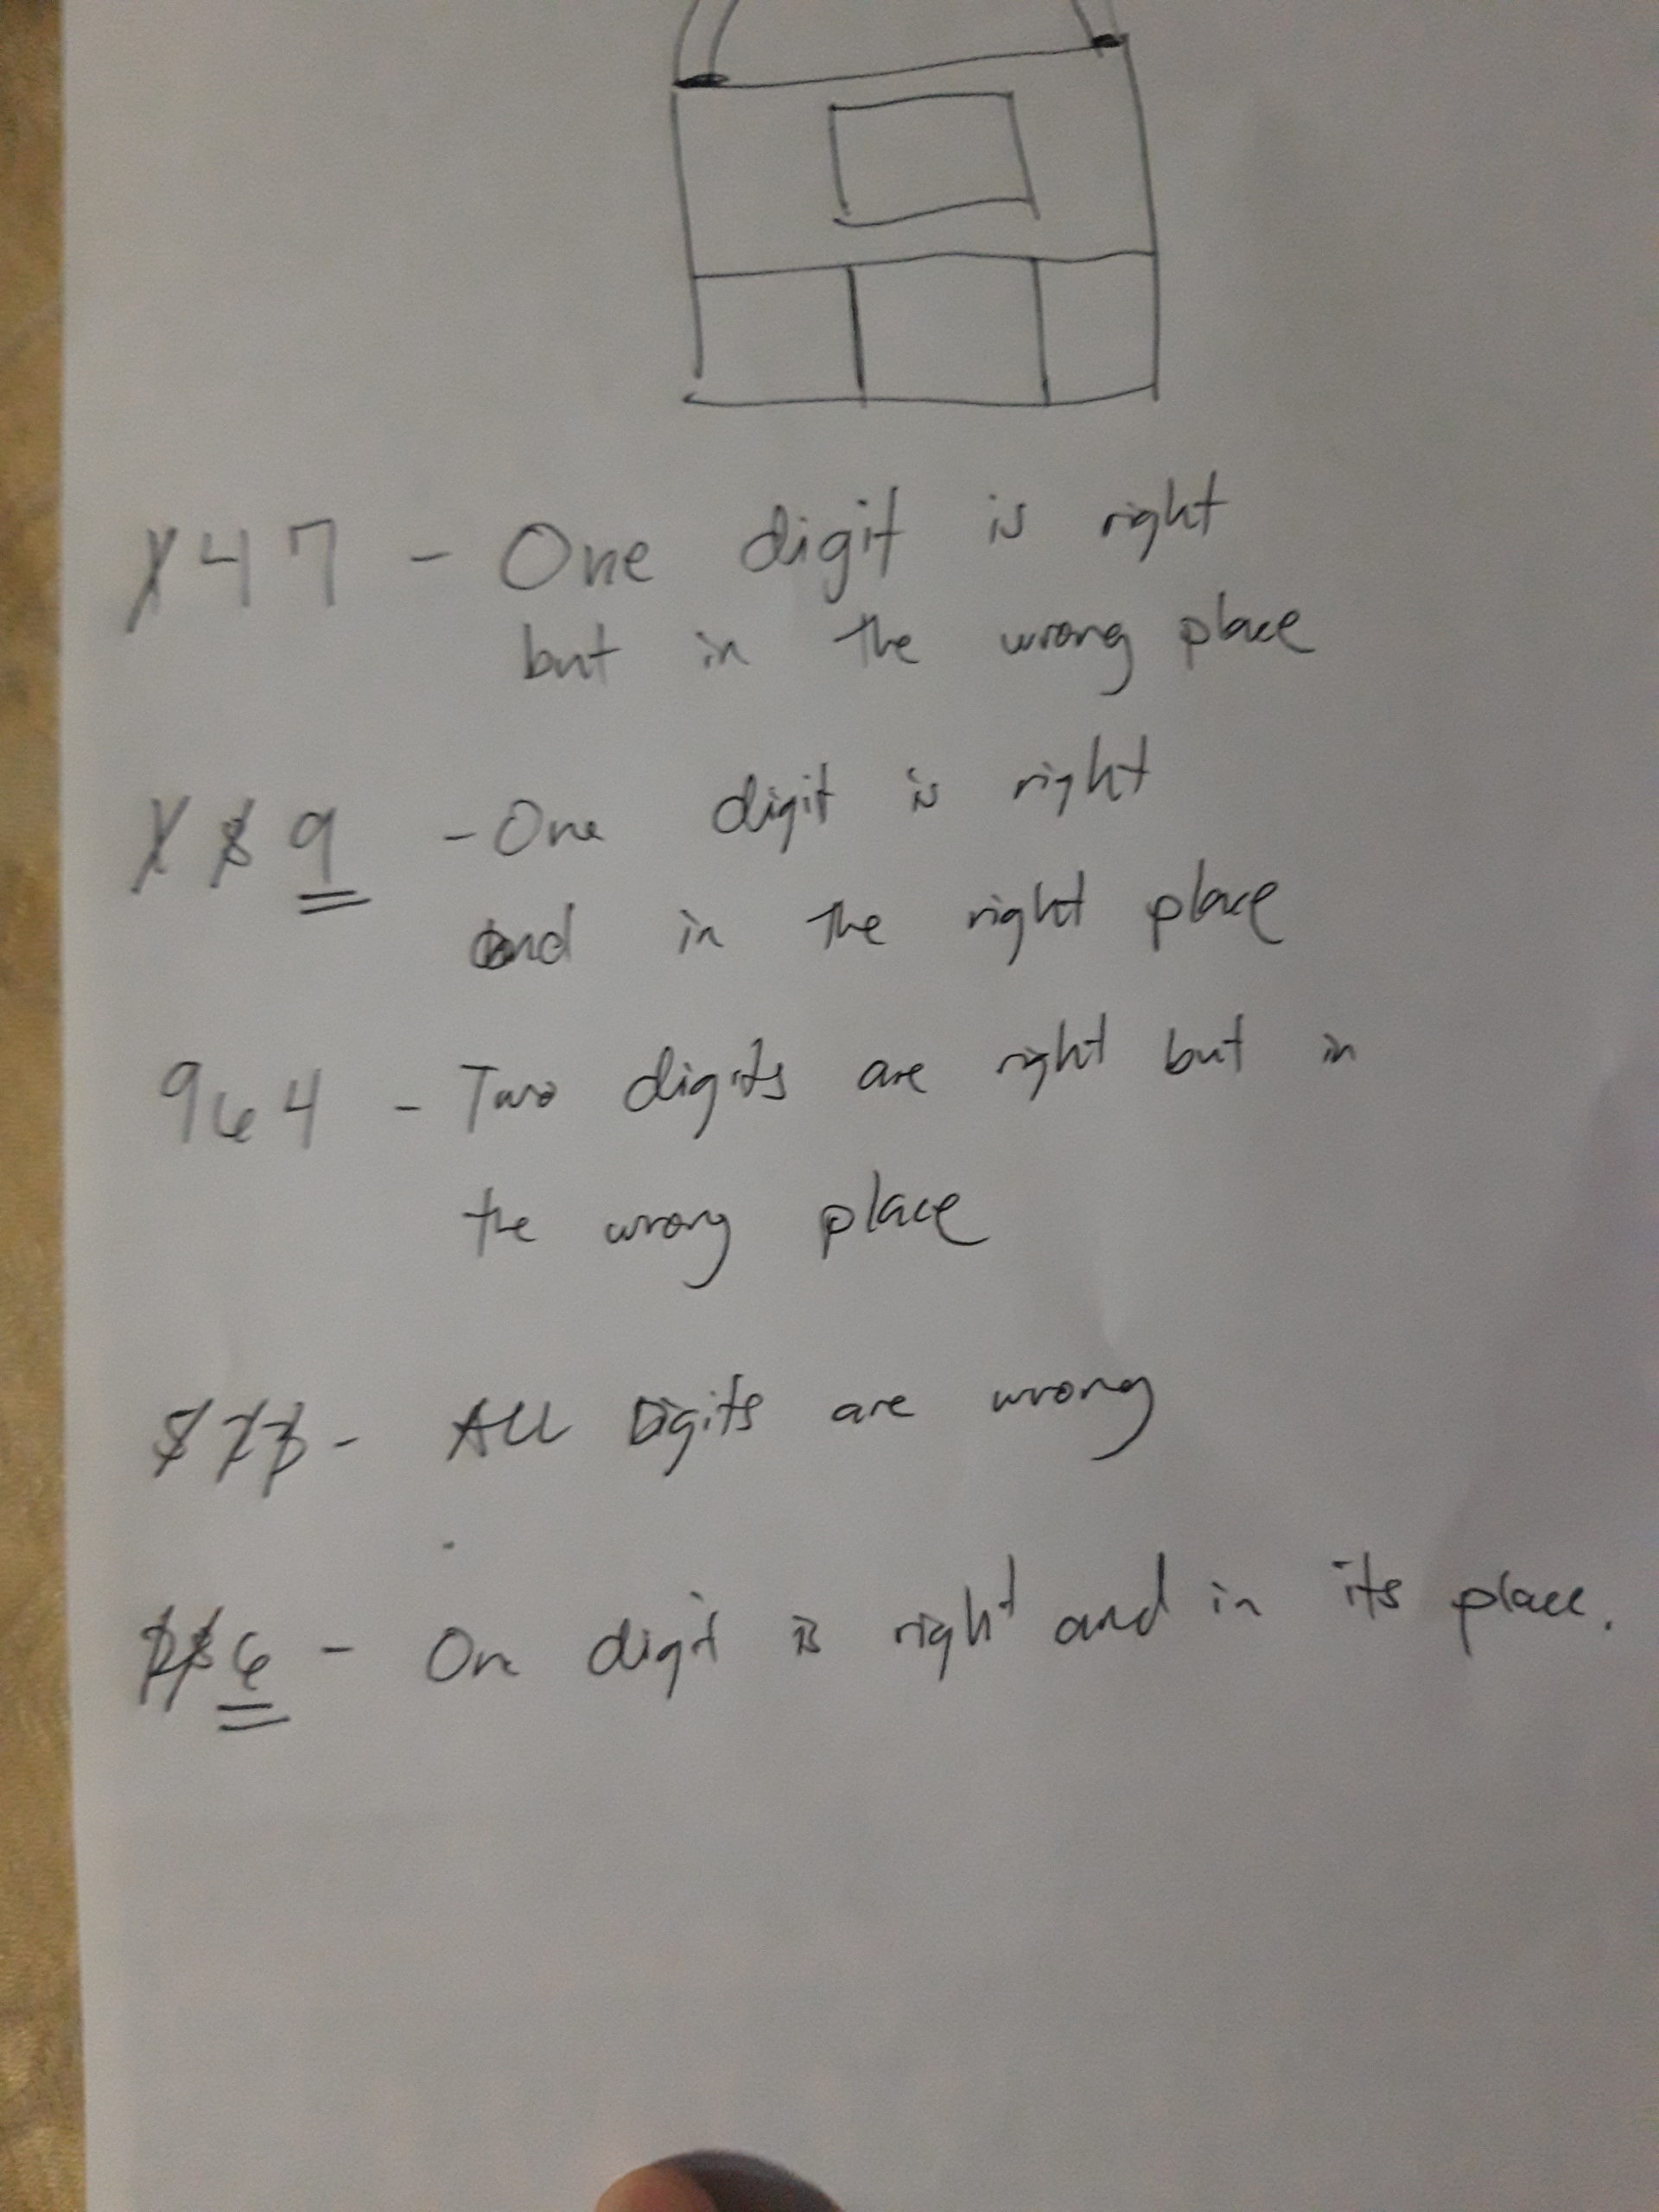 147 - One digit is right
but in the wrong place
189 - One digit is right
and in the right place
964 - Two digits are right but in
the wrong place
523 - ALL Digits are wrong
286 - One digit is right and in its place.